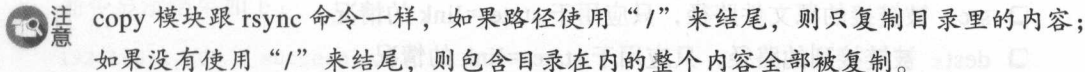 注意 copy 模块跟 rsync 命令一样，如果路径使用“/”来结尾，则只复制目录里的内容；
如果没有使用“/”来结尾，则包含目录在内的整个内容全部被复制。